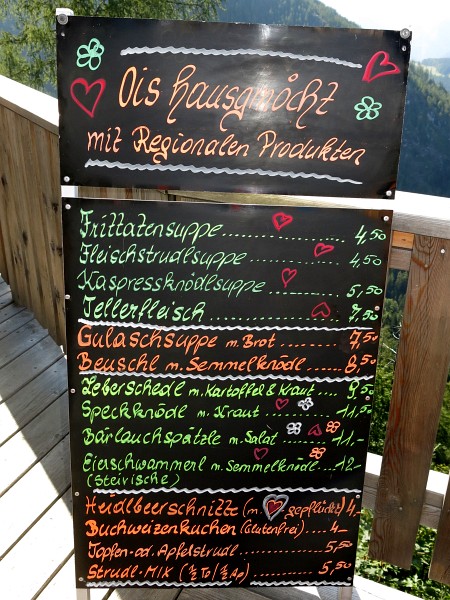 Ois hausgmòcht
mit Regionalen Produkten
Frittatensuppe.................. 4,50
Fleischstrudlsuppe............ 4,50
Kaspressknödlsuppe......... 5,50
Tellerfleisch.................... 7,50
Gulaschsuppe m. Brot........ 7,50
Beuschl m. Semmelknödl... 8,50
Leberschedl m. Kartoffel & Kraut.... 9,50
Speckknödl m. Kraut.......... 11,50
Bärlauchspätzle m. Salat....... 11,-
Eierschwammerl m. Semmelknödl...12,-
(Steirische)
Heidlbeerschnitte (m ♥ gepflückt) 4,-
Buchweizenkuchen (Glutenfrei).... 4,-
Topfen- od. Apfelstrudl............. 5,50
Strudl-Mix (½ To/½ Ap)............ 5,50